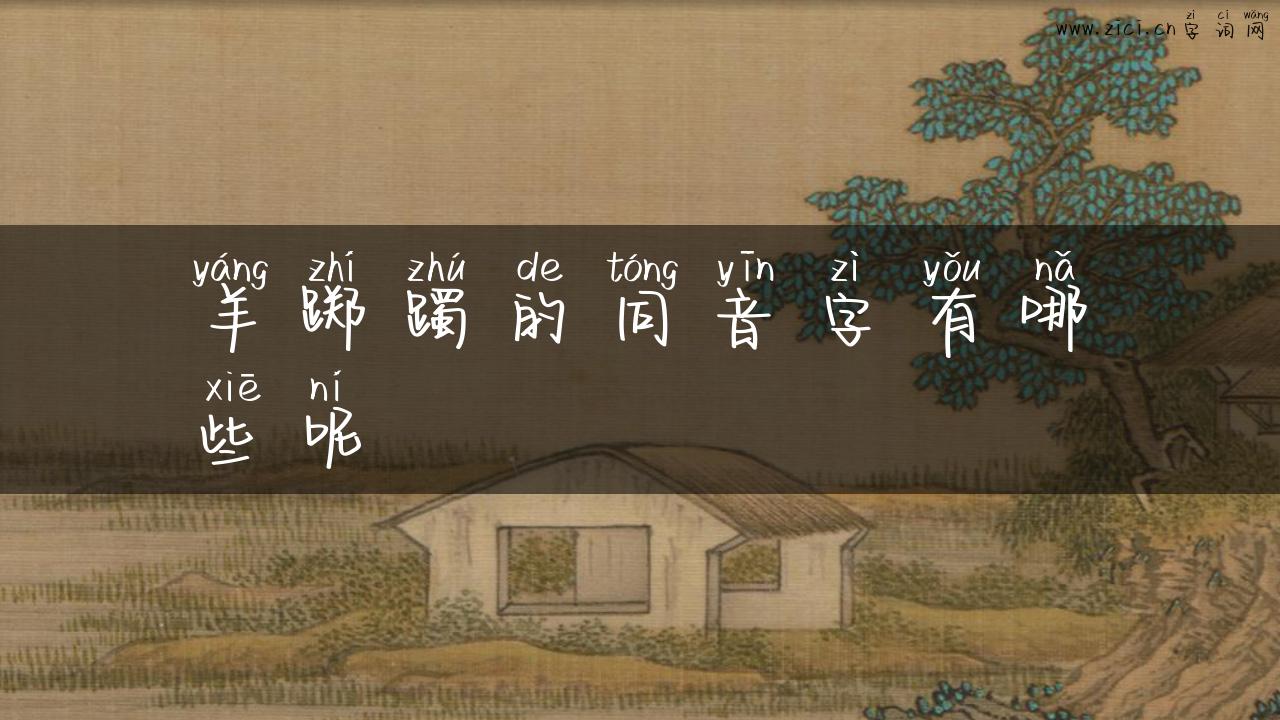 zì cí wǎng
www.zici.cn 字 词 网
yáng zhí zhú de tóng yīn zì yǒu nǎ
羊 踯 躅 的 同 音 字 有 哪
xiē ní
些 呢